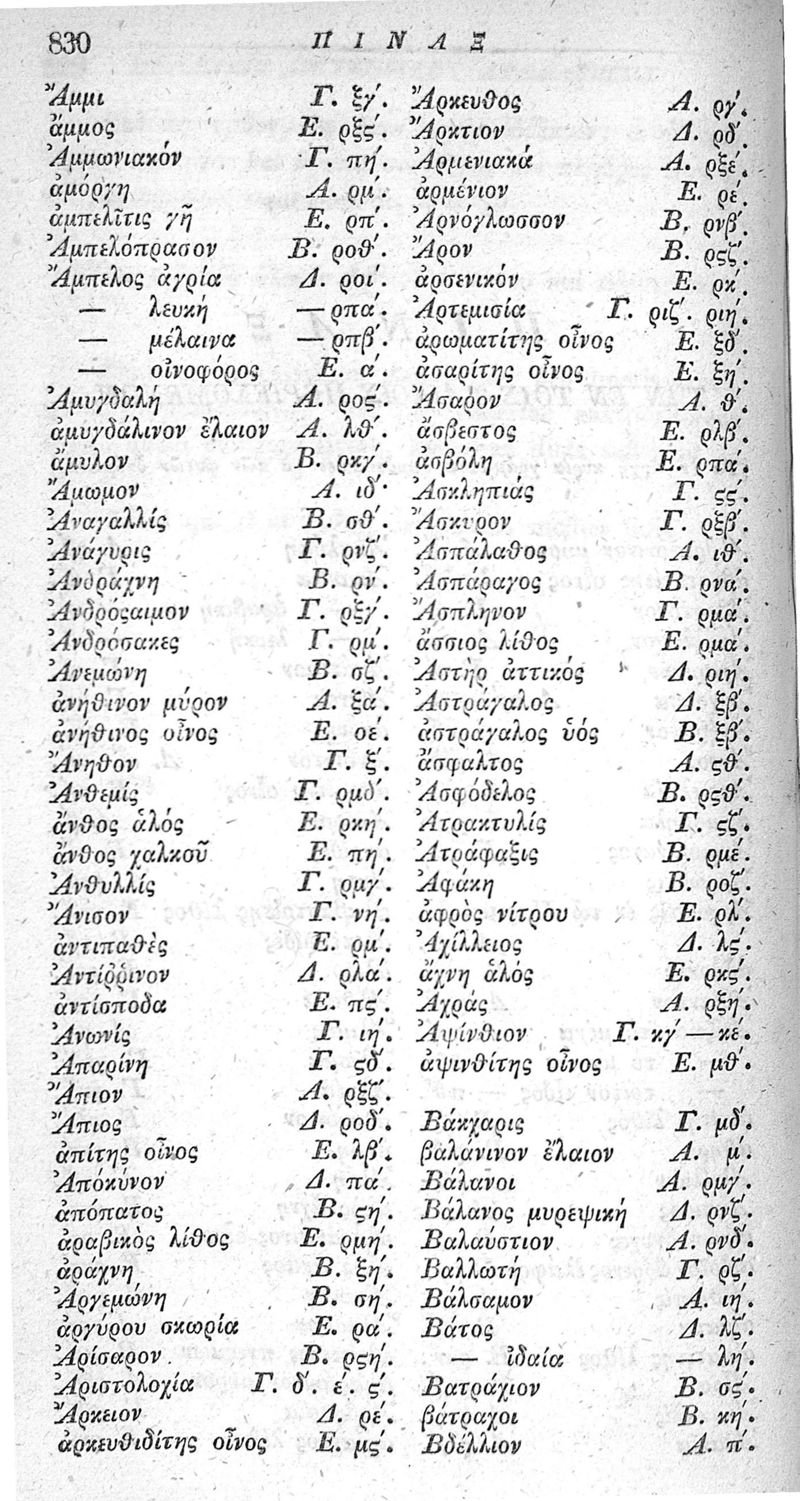 830 Π Ι Ν Α Ξ
Ἄμμι Γ. ξγ΄.
ἄμμος Ε. ρξς΄.
Ἀμμωνιακόν Γ. πη΄.
ἀμόργη Α. ρμ΄.
ἀμπελῖτις γῆ Ε. ρπ΄.
Ἀμπελόπρασον Β. ροθ΄.
Ἄμπελος ἀγρία Δ. ροι΄.
— λευκή — ρπα΄.
— μέλαινα — ρπβ΄.
— οἰνοφόρος Ε. α΄.
Ἀμυγδαλή Α. ρος΄.
ἀμυγδάλινον ἔλαιον Α. λθ΄.
ἄμυλον Β. ρκγ΄.
Ἄμωμον Α. ιδ΄
Ἀναγαλλίς Β. σθ΄.
Ἀνάγυρις Γ. ρνζ΄.
Ἀνδράχνη Β. ρν΄.
Ἀνδρόςαιμον Γ. ρξγ΄.
Ἀνδρόσακες Γ. ρμ΄.
Ἀνεμώνη Β. σζ΄.
ἀνήθινον μύρον Α. ξα΄.
ἀνήθινος οἶνος Ε. οέ.
Ἄνηθον Γ. ξ΄.
Ἀνθεμίς Γ. ρμδ΄.
ἄνθος ἁλός Ε. ρκη΄.
ἄνθος χαλκοῦ Ε. πη΄.
Ἀνθυλλίς Γ. ρμγ΄.
Ἄνισον Γ. νη΄.
ἀντιπαθὲς Ε. ρμ΄.
Ἀντίῤῥινον Δ. ρλα΄.
ἀντίσποδα Ε. πς΄.
Ἀνωνίς Γ. ιη΄.
Ἀπαρίνη Γ. ςδ΄.
Ἄπιον Α. ρξζ΄.
Ἄπιος Δ. ροδ΄.
ἀπίτης οἶνος Ε. λβ΄.
Ἀπόκυνον Δ. πα΄.
ἀπόπατος Β. ςη΄.
ἀραβικὸς λίθος Ε. ρμη΄.
ἀράχνη Β. ξη΄.
Ἀργεμώνη Β. ση΄.
ἀργύρου σκωρία Ε. ρα΄.
Ἀρίσαρον Β. ρςη΄.
Ἀριστολοχία Γ. δ΄. έ. ς΄.
Ἄρκειον Δ. ρέ.
ἀρκευθιδίτης οἶνος Ε. μς΄.
Ἄρκευθος Α. ργ΄.
Ἄρκτιον Δ. ρδ΄.
Ἀρμενιακά Α. ρξέ.
ἀρμένιον Ε. ρέ.
Ἀρνόγλωσσον Β. ρνβ΄.
Ἄρον Β. ρςζ΄.
ἀρσενικόν Ε. ρκ΄.
Ἀρτεμισία Γ. ριζ΄. ριη΄.
ἀρωματίτης οἶνος Ε. ξδ΄.
ἀσαρίτης οἶνος Ε. ξη΄.
Ἄσαρον Α. θ΄.
ἄσβεστος Ε. ρλβ΄.
ἀσβόλη Ε. ρπα΄.
Ἀσκληπιάς Γ. ςς΄.
Ἄσκυρον Γ. ρξβ΄.
Ἀσπάλαθος Α. ιθ΄.
Ἀσπάραγος Β. ρνα΄.
Ἄσπληνον Γ. ρμα΄.
ἄσσιος λίθος Ε. ρμα΄.
Ἀστὴρ ἀττικός Δ. ριη΄.
Ἀστράγαλος Δ. ξβ΄.
ἀστράγαλος ὑός Β. ξβ΄.
ἄσφαλτος Α. ςθ΄.
Ἀσφόδελος Β. ρςθ΄.
Ἀτρακτυλίς Γ. ςζ΄.
Ἀτράφαξις Β. ρμέ.
Ἀφάκη Β. ροζ΄.
ἀφρὸς νίτρου Ε. ρλ΄.
Ἀχίλλειος Δ. λς΄.
ἄχνη ἁλός Ε. ρκς΄.
Ἀχράς Α. ρξη΄.
Ἀψίνθιον Γ. κγ΄ — κέ.
ἀψινθίτης οἶνος Ε. μθ΄.
Βάκχαρις Γ. μδ΄.
βαλάνινον ἔλαιον Α. μ΄.
Βάλανοι Α. ρμγ΄.
Βάλανος μυρεψική Δ. ρνζ΄.
Βαλαύστιον Α. ρνδ΄.
Βαλλωτή Γ. ρζ΄.
Βάλσαμον Α. ιη΄.
Βάτος Δ. λζ΄.
— ἰδαία — λη΄.
Βατράχιον Β. σς΄.
βάτραχοι Β. κη΄.
Βδέλλιον Α. π΄.